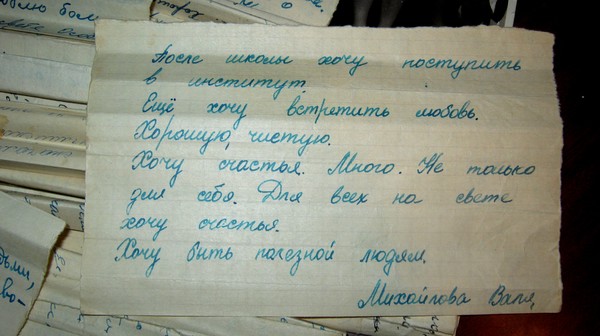 После школы хочу поступить
в институт.
Ещё хочу встретить любовь.
Хорошую, чистую.
Хочу счастья. Много. Не только
для себя. Для всех на свете
хочу счастья.
Хочу быть полезной людям.
Михайлова Валя.
юблю бол
дьми,